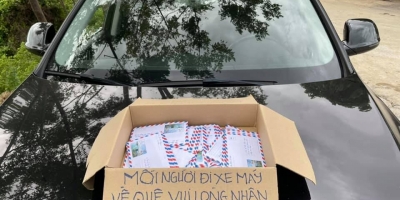 MỖI NGƯỜI ĐI XE MÁY
VỀ QUÊ VUI LÒNG NHẬN